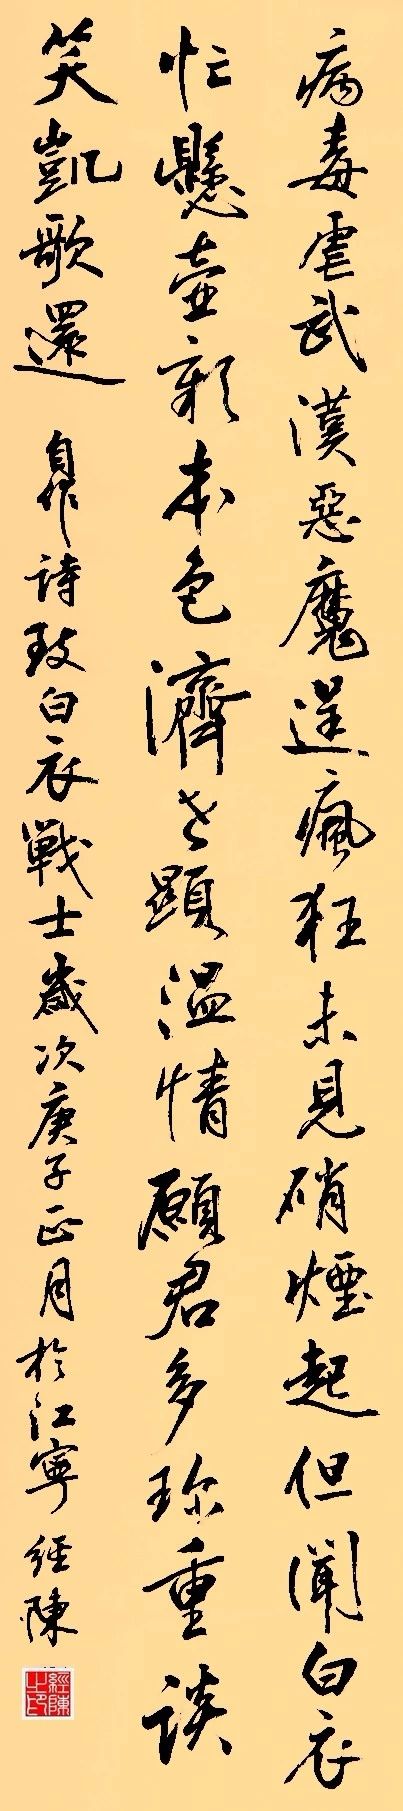 病毒虐武漢惡魔逞瘋狂未見硝煙起但聞白衣
忙懸壺彰本色濟世顯溫情願君多珍重談
笑凱歌還
自作詩致白衣戰士歲次庚子正月於江寧經陳
經陳之印